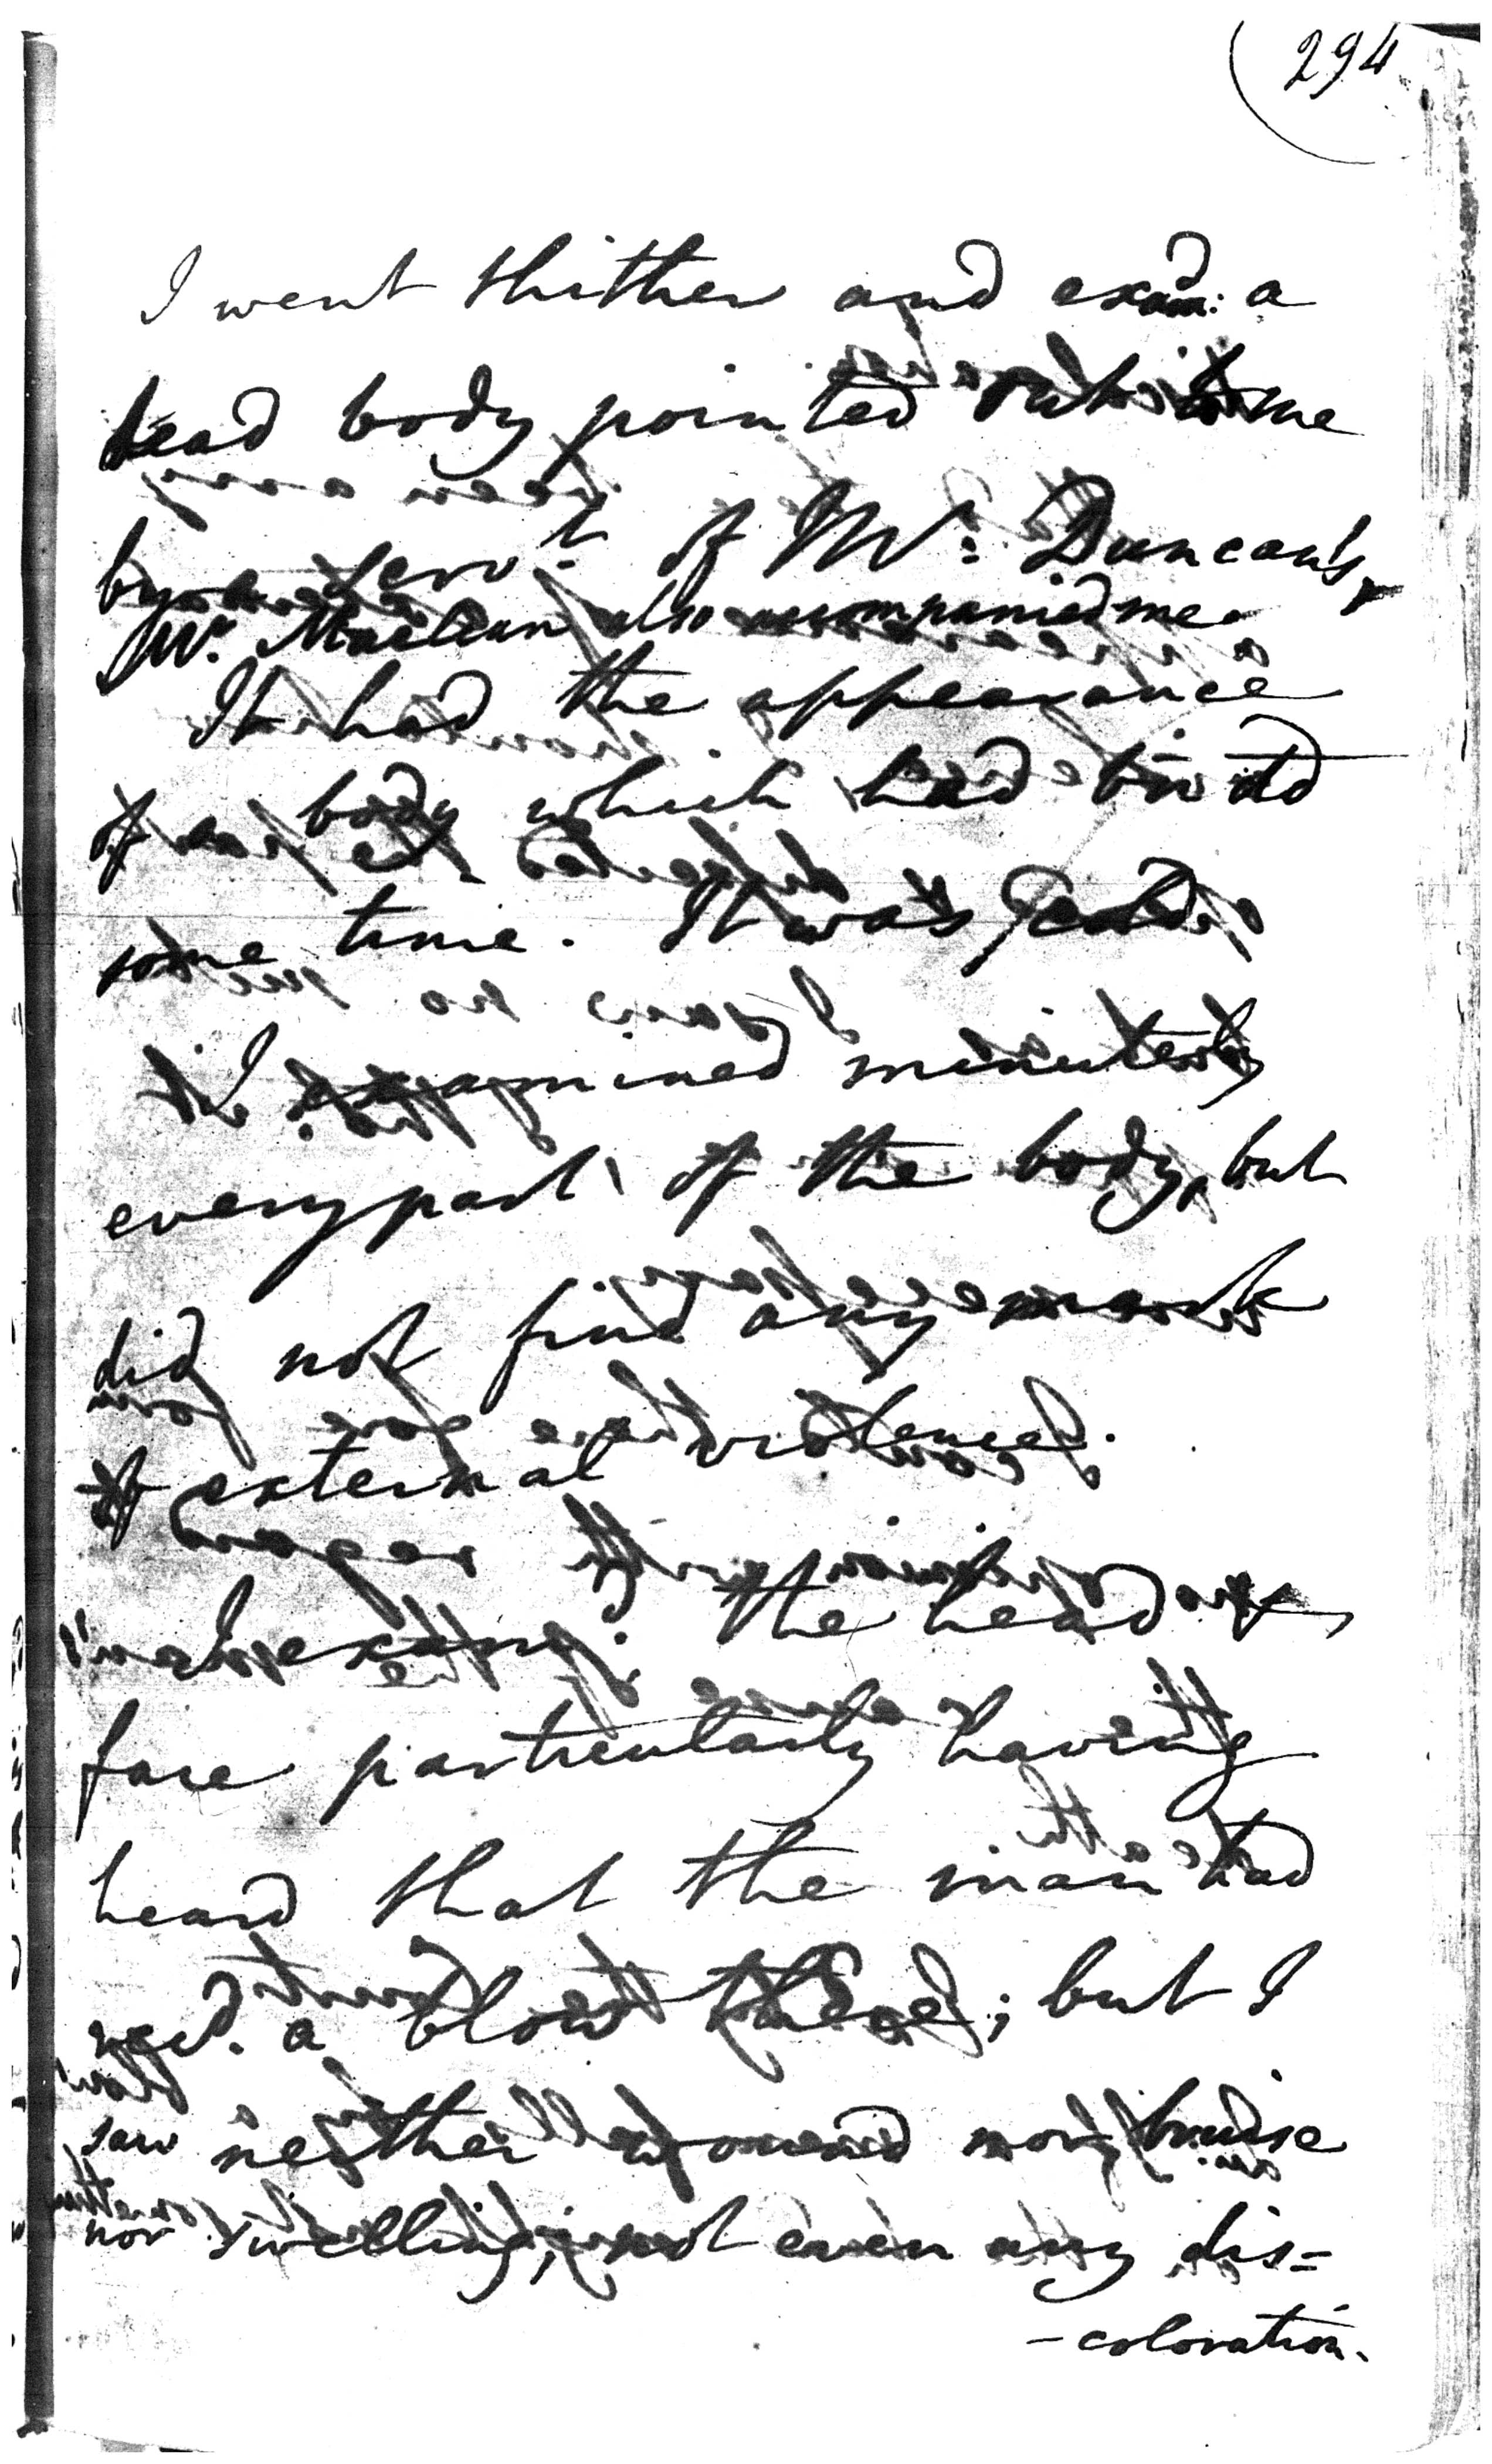 294
I went thither and exam:d a
dead body pointed out to me
by a serv.t of Mr. Duncan's,
Mr. Maclean also accompanied me.
It had the appearance
of a body which had been dd
some time. It was cold.
I examined minutely
every part of the body, but
did not find any mark
of external violence.
I exam.d the head &
face particularly having
heard that the man had
recd. a blow there; but I
saw neither wound nor bruise
nor swelling, not even any dis=
-coloration.